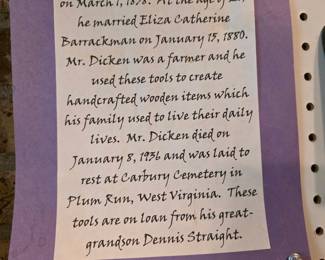 on March 1, 1858. At the age of
he married Eliza Catherine
Barrackman on January 15, 1880.
Mr. Dicken was a farmer and he
used these tools to create
handcrafted wooden items which
his family used to live their daily
lives. Mr. Dicken died on
January 8, 1936 and was laid to
rest at Carbury Cemetery in
Plum Run, West Virginia. These
tools are on loan from his great-
grandson Dennis Straight.